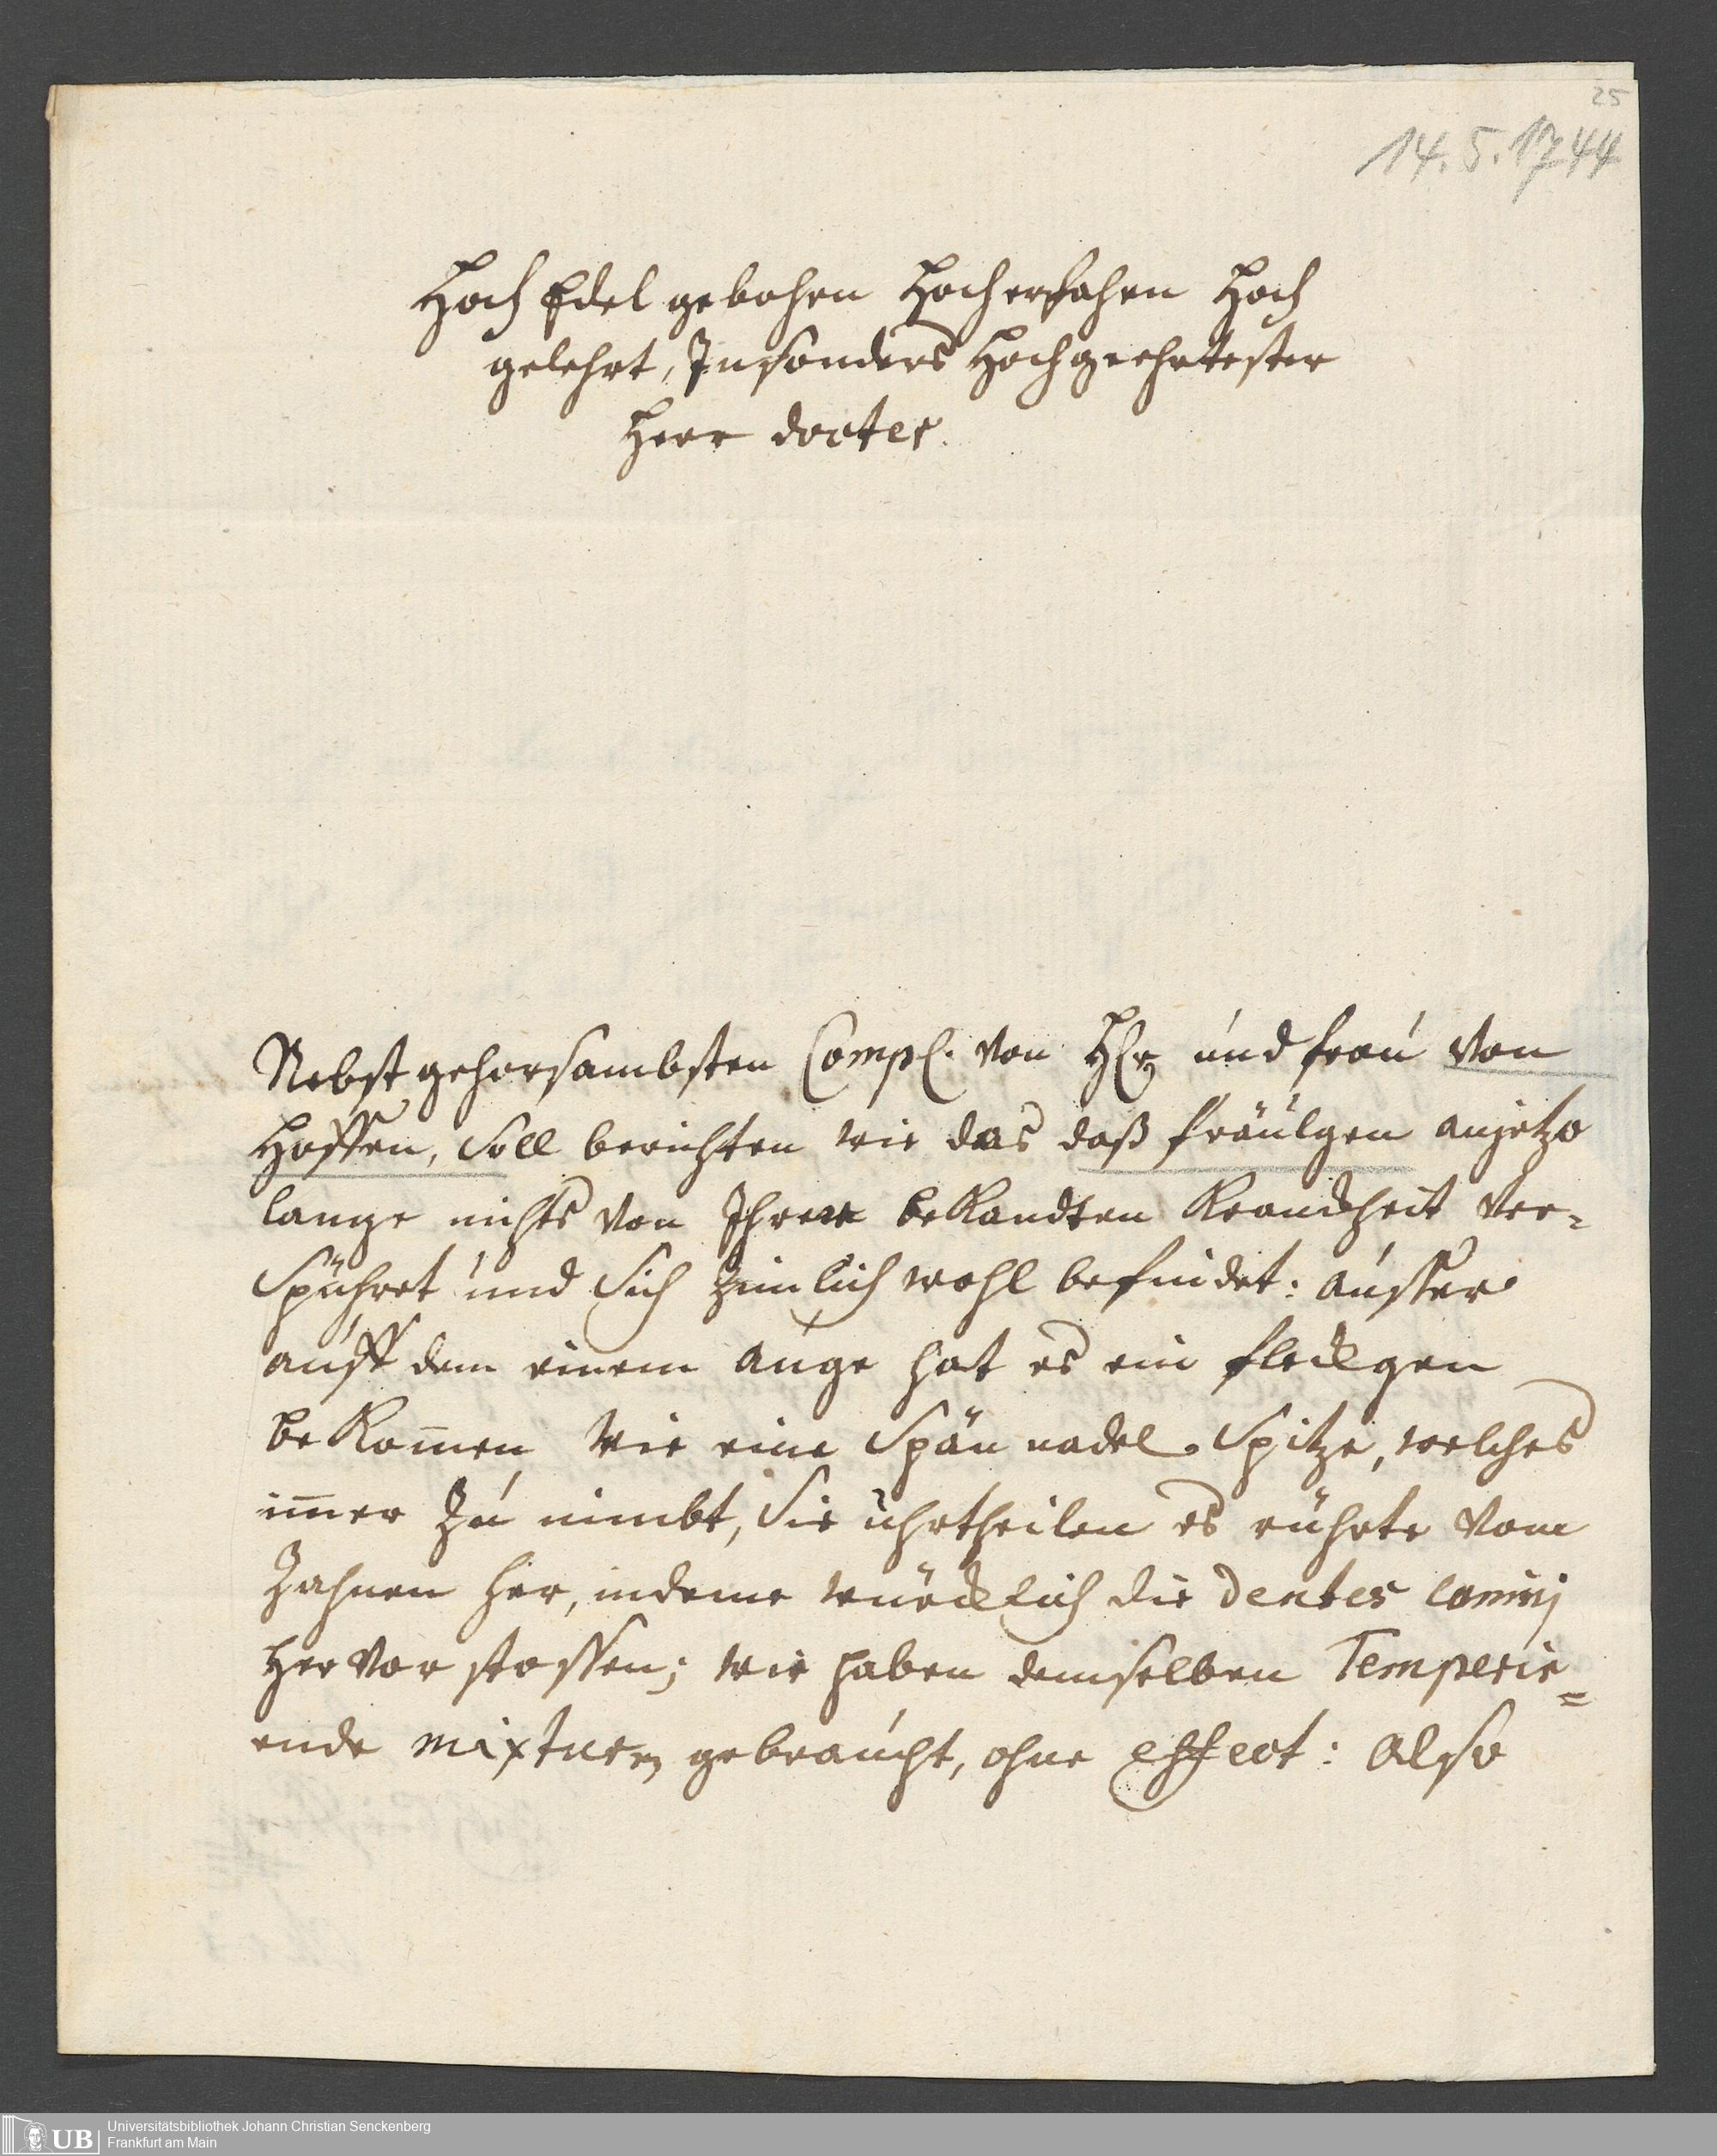 25
14. 5. 1744
Hoch Edel gebohrn Hocherfahrn Hoch
gelehrt, Insonders Hochgeehrtester
Herr docter.
Nebst gehorsambsten Compl. von Hr und frau von
Hoffen, soll berichten wie das daß fräulgen anjetzo
lange nichts von Ihrer beKandten Kranckheit ver-
spühret und sich zimlich wohl befindet: ausser
auff dem einem auge hat es ein fleckgen
beKom̄en wie eine Spän nadel. Spitze, welches
im̄er zu nimbt, Sie uhrtheilen es rührte vom
Zahnen her, indeme würcklich die Dentes canini
hervor stossen; wir haben demselben Temperir=
ende mixturen gebraucht, ohne effect: Also
UB
Universitätsbibliothek Johann Christian Senckenberg
Frankfurt am Main